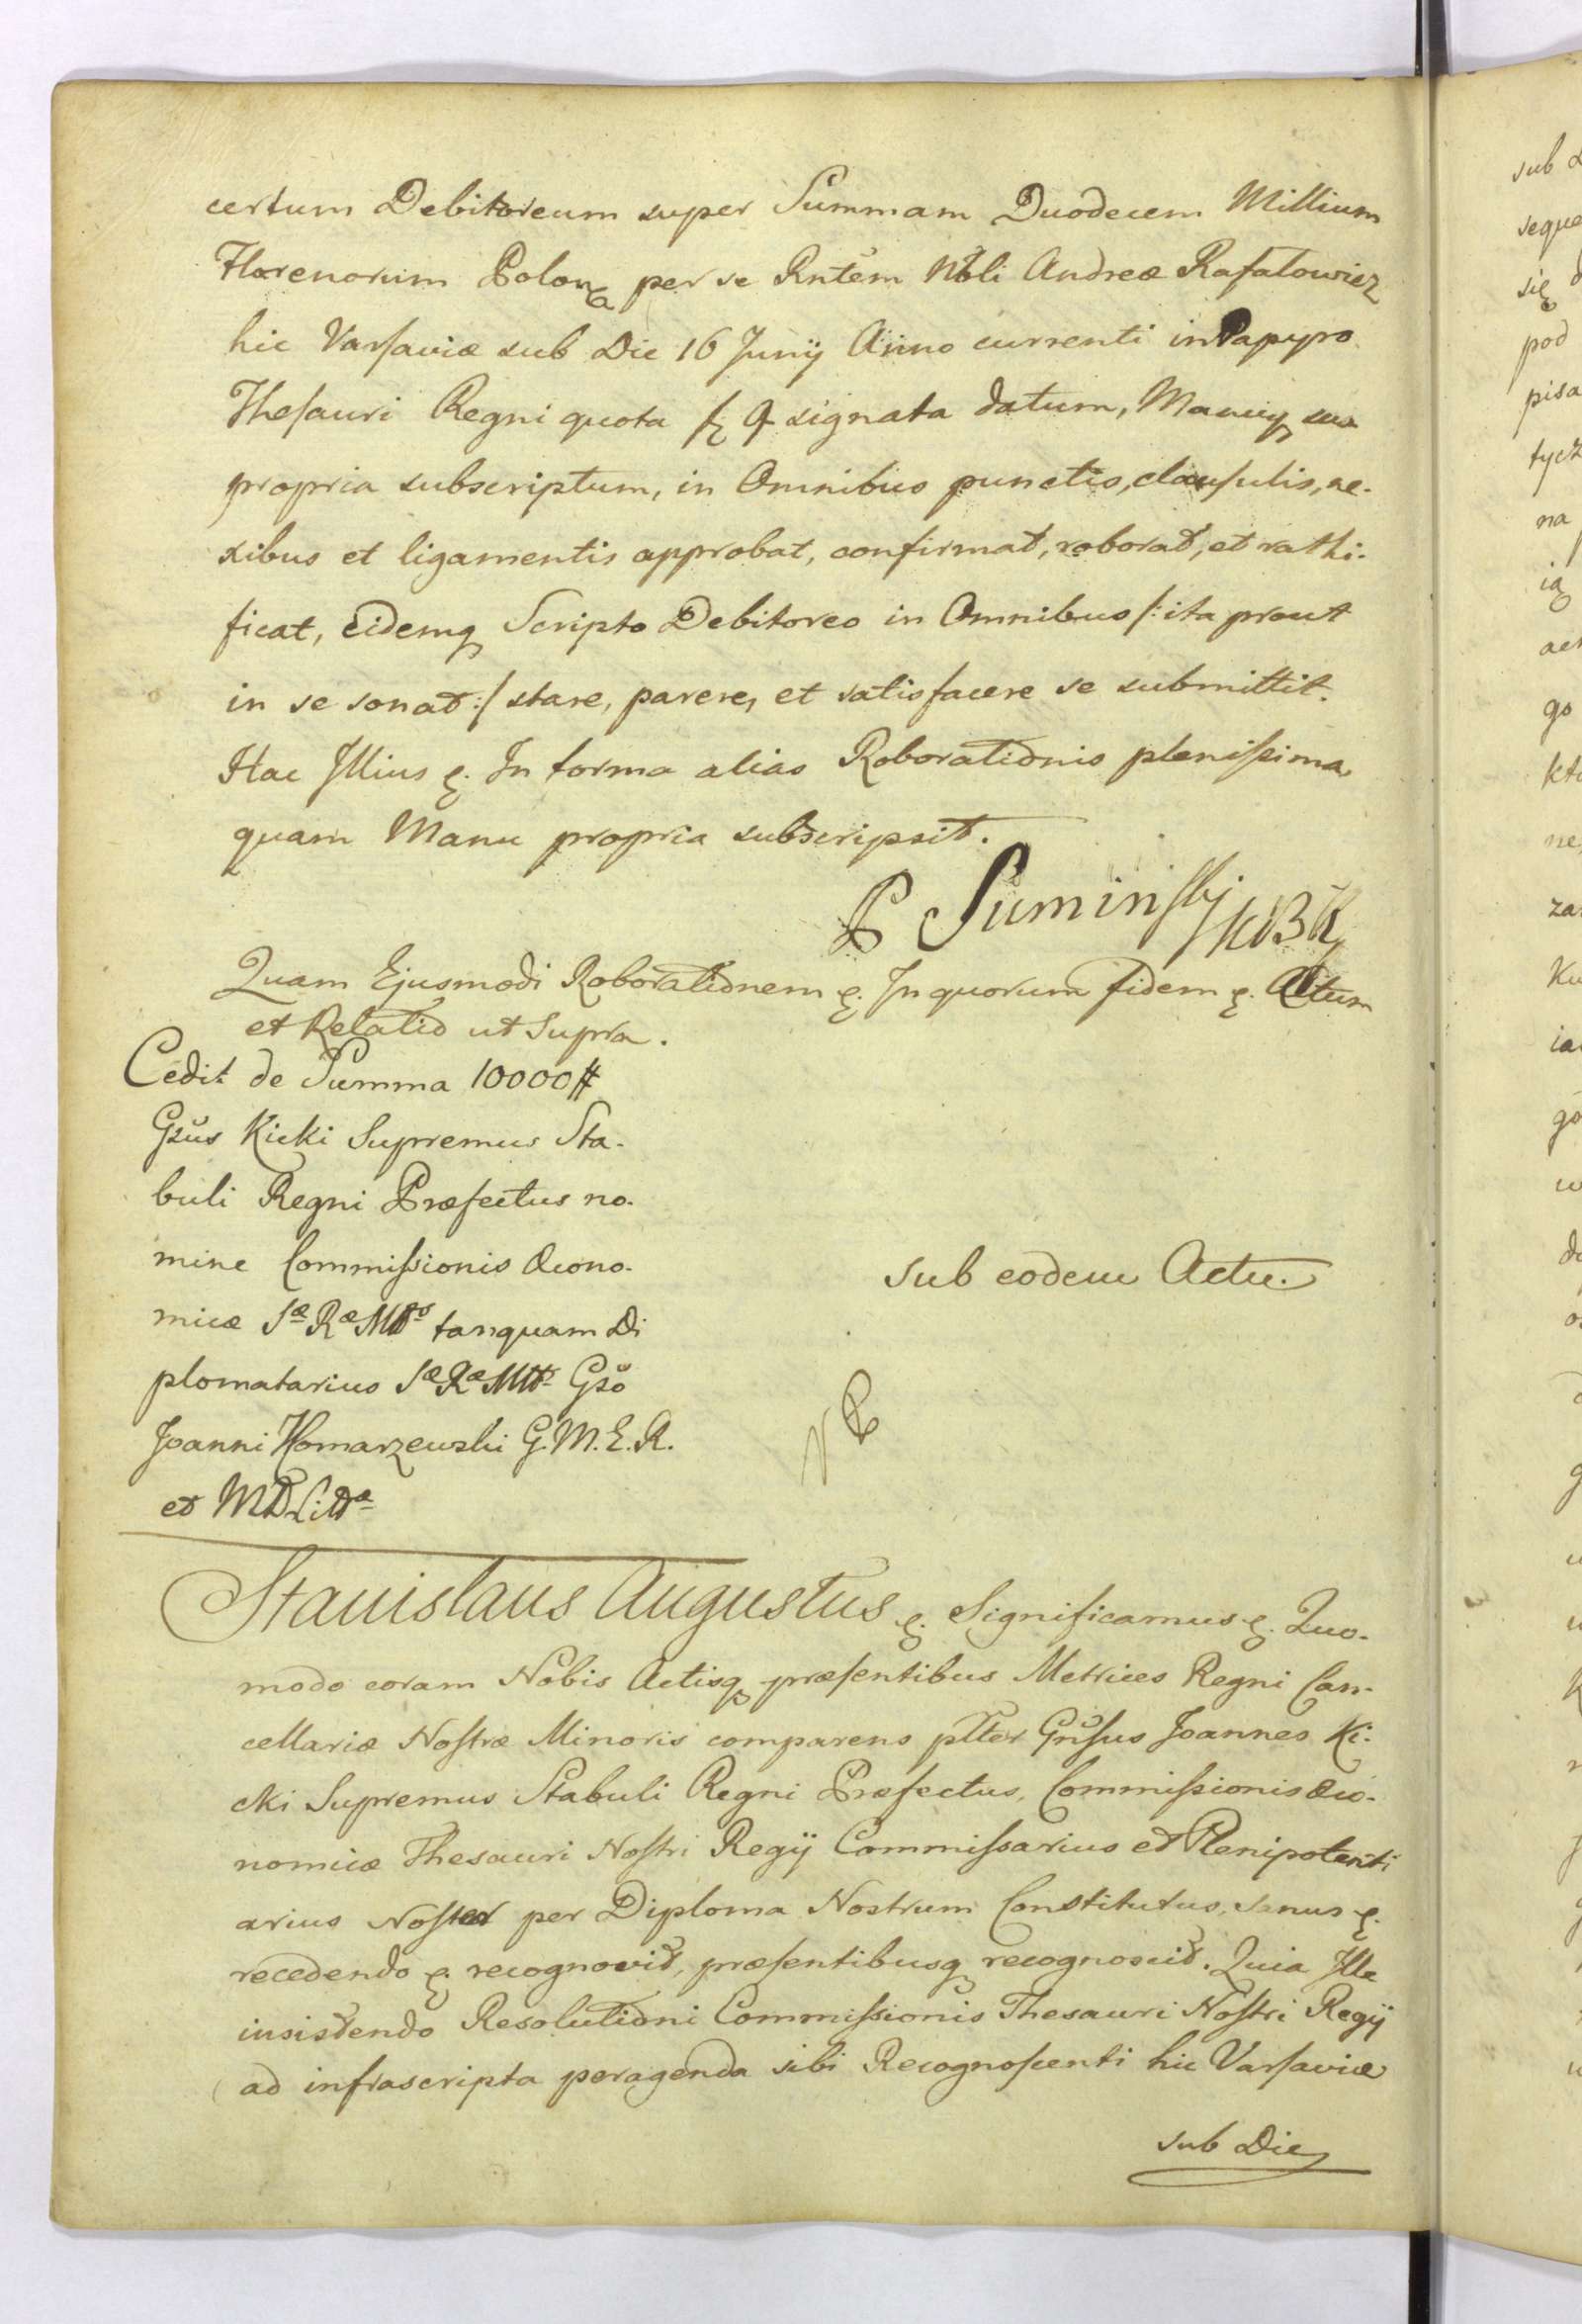 certum Debitoreum super Summam Duodecem Millium
Florenorum Polon per se Rntem Nbli Andreæ Rafałowicz
hic Varsaviæ sub Die 16 Junÿ Anno currenti in Papyro
Thesauri Regni quota signata datum, Manuq sua
propria subscriptum, in Omnibus punctis, clausulis, ne-
xibus et ligamentis approbat, confirmat, roborat, et rathi-
ficat, eidemq Scripto Debitoreo in Omnibus /: ita prout
in se sonat :/ stare, parere, et satisfacere se submittit.
Hac Illius &. In forma alias Roborationis plenissima,
quam Manu propria subscripsit.
P Suminski KBK
Quam Ejusmodi Roborationem &. In quorum fidem &. Actum
et Relatio ut Supra.
Cedit de Summa 10000 #
Gsus Kicki Supremus Sta-
buli Regni Præfectus no-
mine Commissionis Œcono-
micæ Sæ Ræ Mttis tanquam Di
plomatarius Sæ Ræ Mttis Gso
Joanni Komarzewski G. M. E. R.
et MD Litt
sub eodem Actu.
NB
Stanislaus Augustus &. Significamus &. Quo-
modo coram Nobis Actisq præsentibus Metrices Regni Can-
cellariæ Nostræ Minoris comparens pltter Gnsus Joannes Ki-
cki Supremus Stabuli Regni Præfectus, Commissionis Œco-
nomicæ Thesauri Nostri Regÿ Commissarius et Plenipotenti
arius Noster per Diploma Nostrum Constitutus, sanus &.
recedendo &. recognovit, præsentibusq recognoscit. Quia Ille
insistendo Resolutioni Commissionis Thesauri Nostri Regÿ
ad infrascripta peragenda sibi Recognoscenti hic Varsaviæ
sub Die
sub
seque
się
pod
pisa
tycz
na
ią
go
kto
ne
za
Ku
ia
go